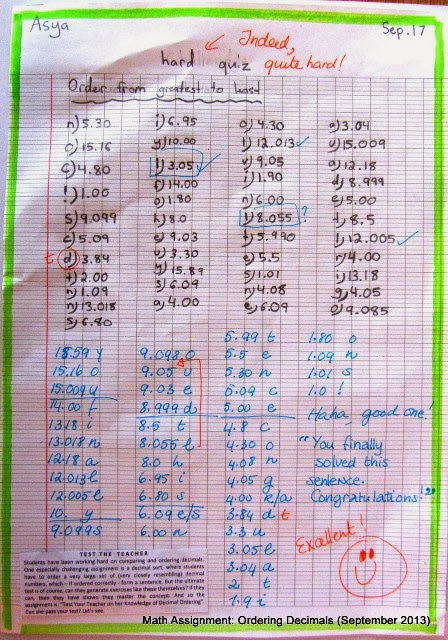 Asya
Sep.17
Indeed,
hard quiz quite hard!
Order from greatest to least
n) 5.30
o) 15.16
c) 4.80
!) 1.00
s) 9.099
c) 5.09
t
d) 3.84
t) 2.00
n) 1.09
n) 13.018
s) 6.80
i) 6.95
y) 10.00
l) 3.05
f) 14.00
o) 1.80
h) 8.0
e) 9.03
u) 3.30
y) 15.89
s) 6.09
a) 4.00
o) 4.30
l) 12.013
v) 9.05
i) 1.90
n) 6.00
l) 8.055 ?
t) 5.990
e) 5.5
s) 1.01
n) 4.08
e) 6.09
a) 3.04
u) 15.009
a) 12.18
d) 8.999
e) 5.00
t) 8.5
l) 12.005
r) 4.00
i) 13.18
g) 4.05
o) 9.085
15.59 y
15.16 o
15.009 u
14.00 f
13.18 i
13.018 n
12.18 a
12.013 l
12.005 l
10. y
9.099 s
9.098 o
9.05 v
9.03 e
8.999 d
8.5 t
8.055 l
8.0 h
6.95 i
6.80 s
6.09 e/s
6.00 n
5.99 t
5.5 e
5.30 n
5.09 c
5.00 e
4.8 c
4.30 o
4.08 n
4.05 g
4.00 r/a
3.84 d t
3.3 u
3.05 l
3.04 a
2 t
1.9 i
1.80 o
1.09 n
1.01 s
1.0 !
Haha, good one!
"You finally
solved this
sentence.
Congratulations!"
Excellent!
TEST THE TEACHER
Students have been working hard on comparing and ordering decimals.
One especially challenging assignment is a decimal sort, where students
have to order a very large set of (very closely resembling) decimal
numbers, which - if ordered correctly - form a sentence. But the ultimate
test is of course, can they generate exercises like these themselves? If they
can, then they have shown they master the concept. And so the
assignment is: "Test Your Teacher on her Knowledge of Decimal Ordering".
Can she pass your test? Let's see.
Math Assignment: Ordering Decimals (September 2013)